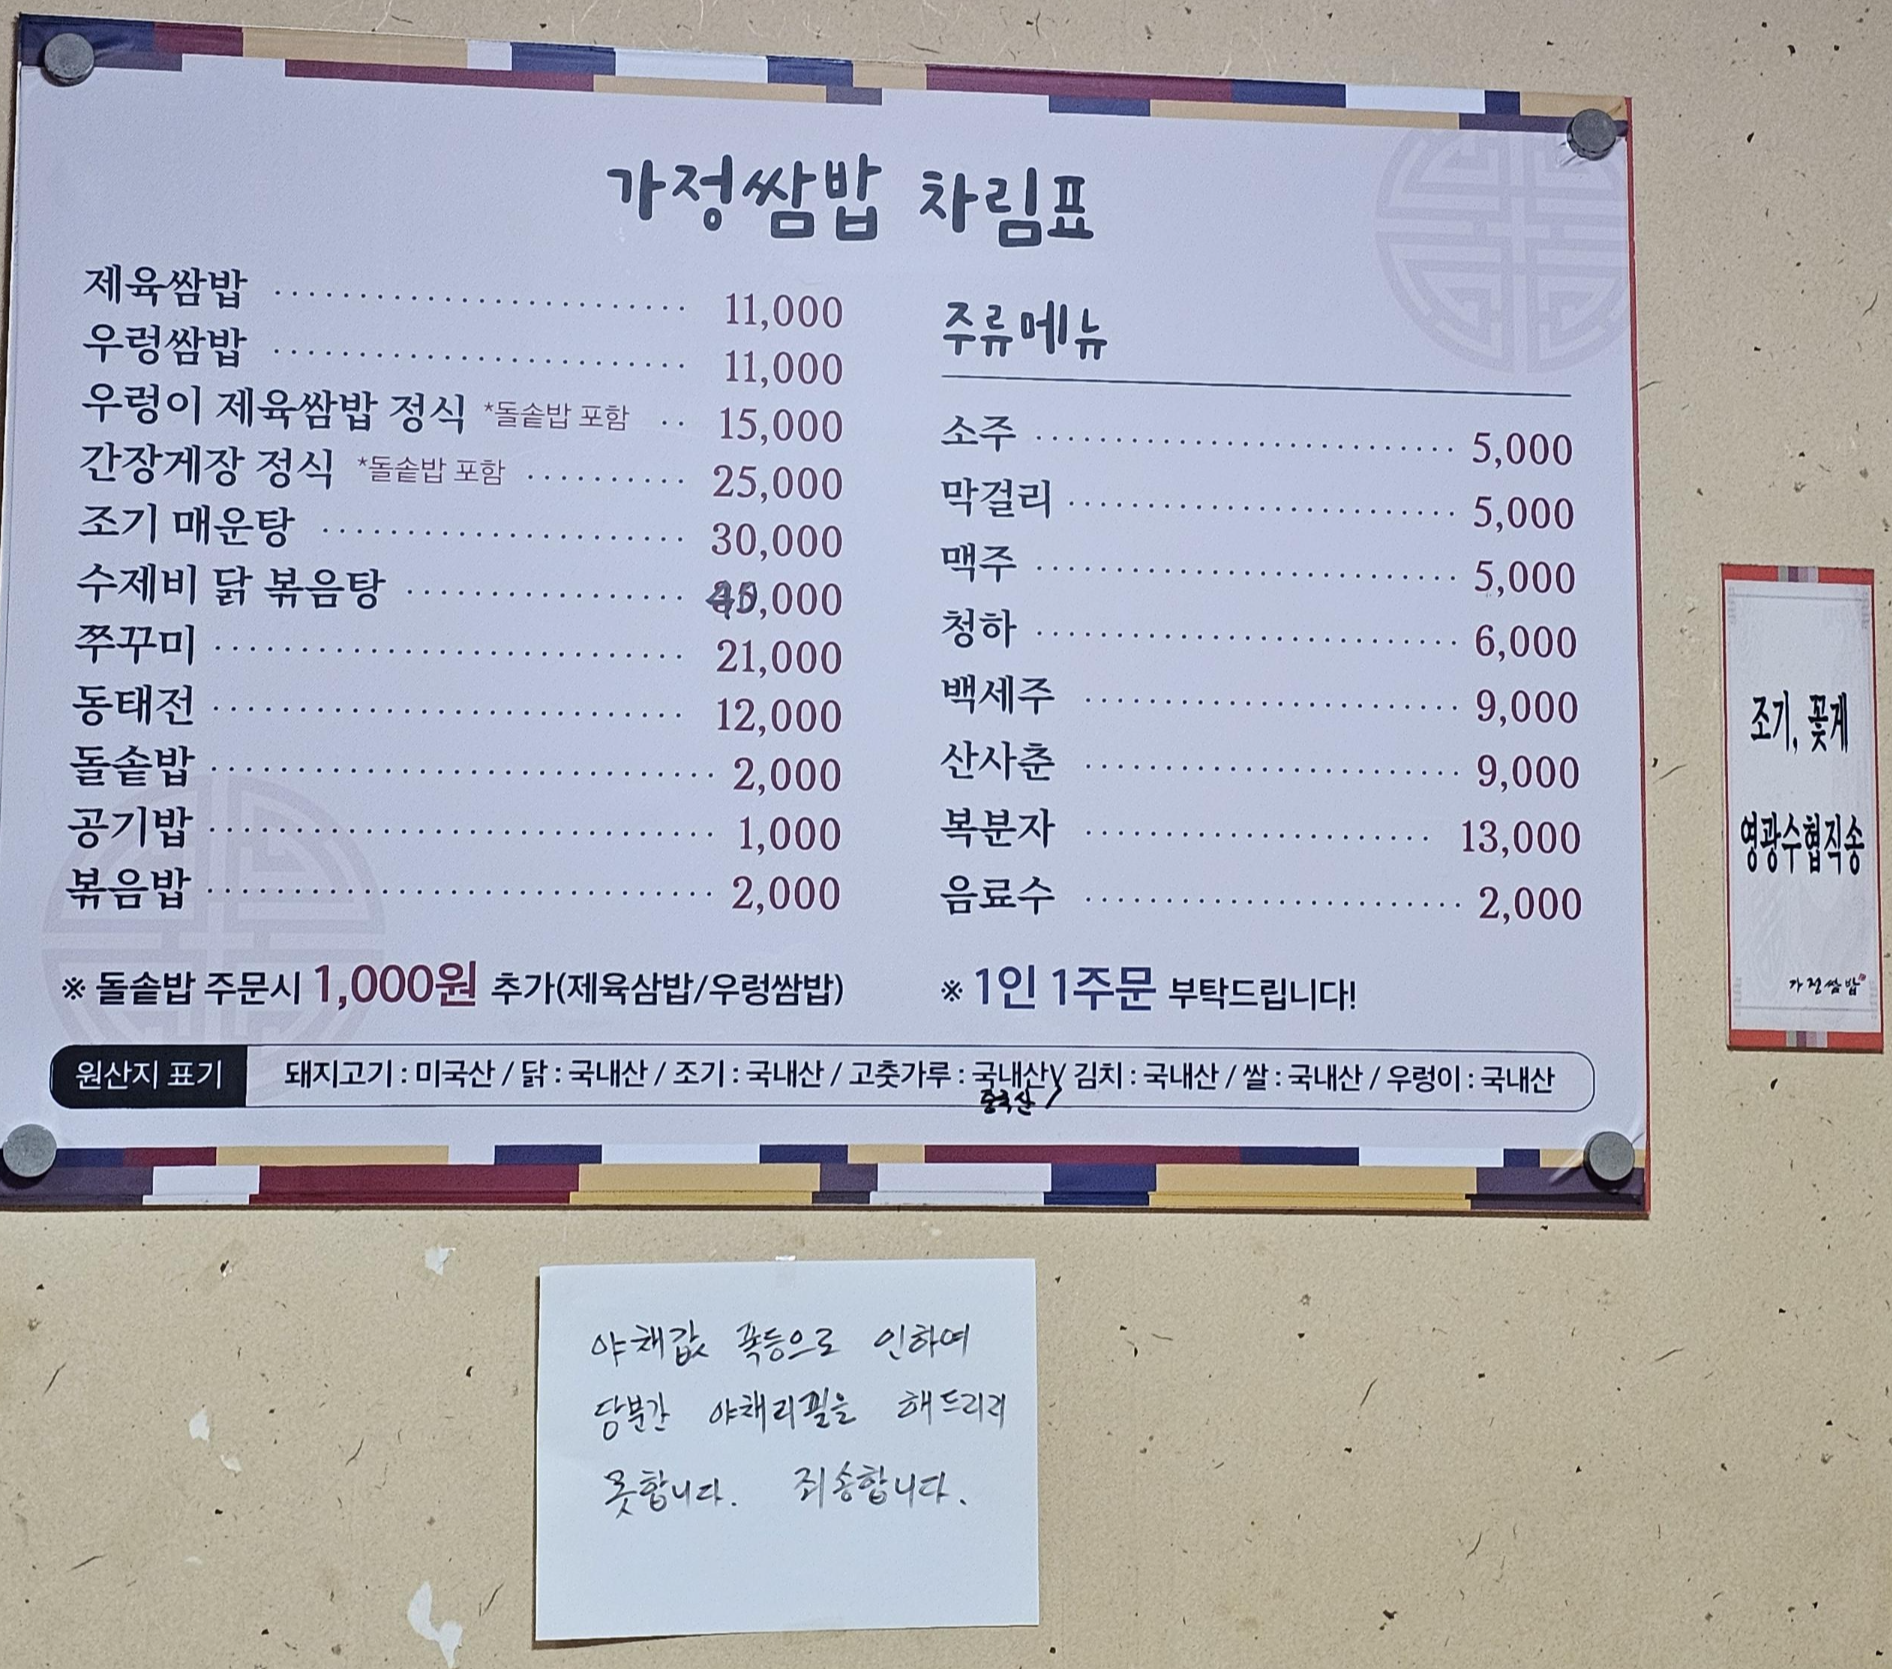 가정쌈밥 차림표
제육쌈밥 ........................ 11,000
우렁쌈밥 ........................ 11,000
우렁이 제육쌈밥 정식 *돌솥밥 포함 .. 15,000
간장게장 정식 *돌솥밥 포함 .......... 25,000
조기 매운탕 ..................... 30,000
수제비 닭 볶음탕 ................ ,000
쭈꾸미 ............................ 21,000
동태전 ............................ 12,000
돌솥밥 .............................. 2,000
공기밥 .............................. 1,000
볶음밥 .............................. 2,000
※ 돌솥밥 주문시 1,000원 추가(제육삼밥/우렁쌈밥)
주류메뉴
소주 ........................... 5,000
막걸리 ......................... 5,000
맥주 ........................... 5,000
청하 ........................... 6,000
백세주 ........................ 9,000
산사춘 ........................ 9,000
복분자 ...................... 13,000
음료수 ........................ 2,000
※ 1인 1주문 부탁드립니다!
원산지 표기 돼지고기 : 미국산 / 닭 : 국내산 / 조기 : 국내산 / 고춧가루 : 국내산 / 김치 : 국내산 / 쌀 : 국내산 / 우렁이 : 국내산
중국산
조기, 꽃게
영광수협직송
가정쌈밥
야채값 폭등으로 인하여
당분간 야채리필을 해드리지
못합니다. 죄송합니다.